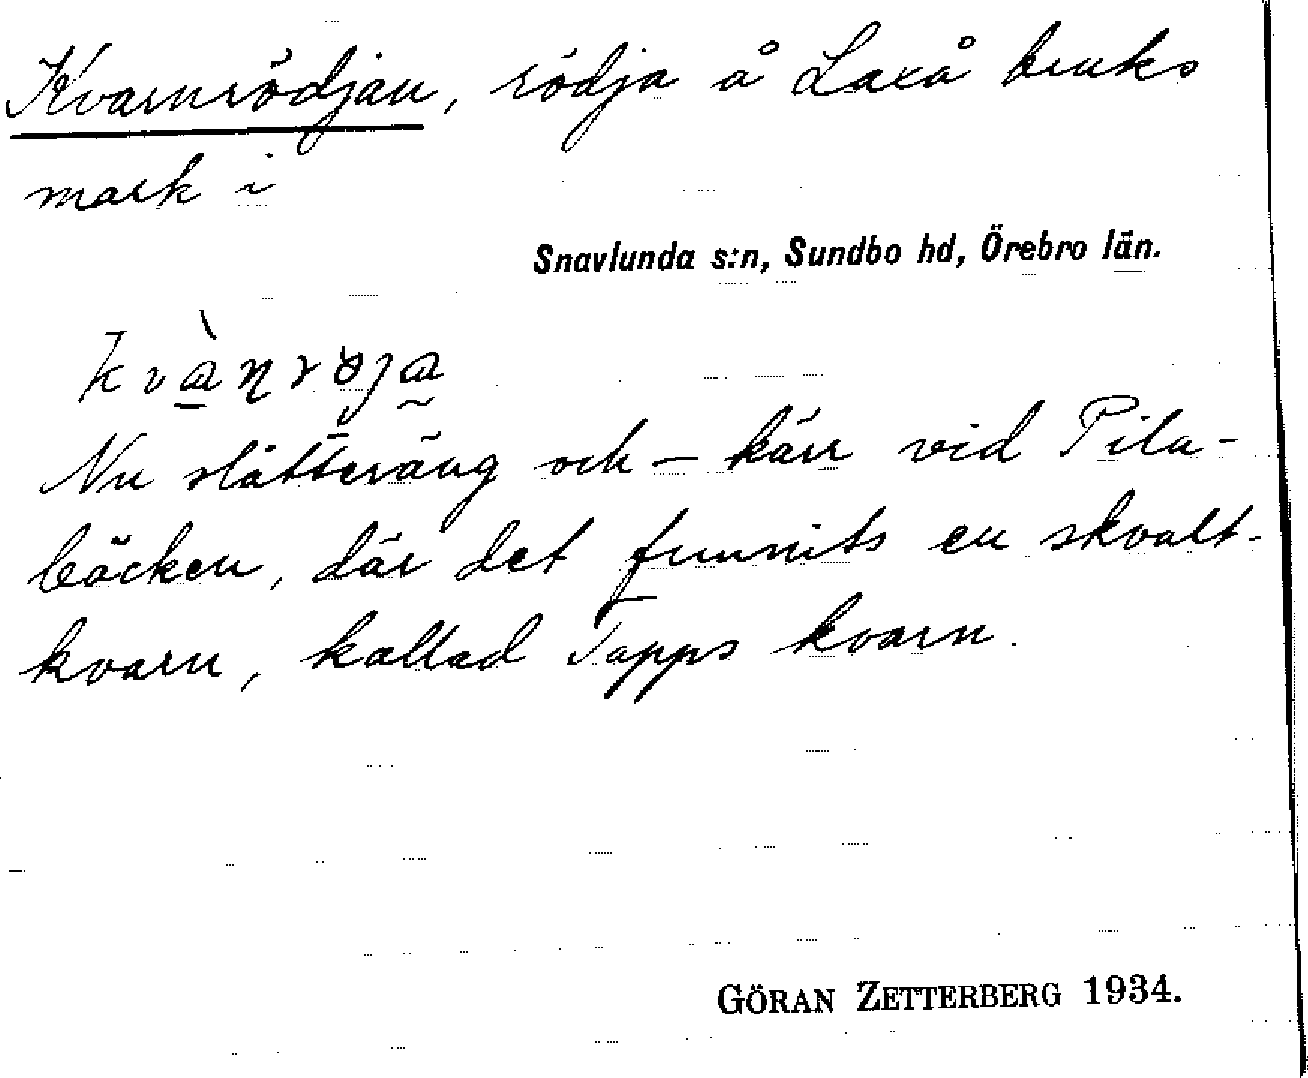 Kvarnrödjan, rödja å Laxå bruks
mark i
Snavlunda s:n, Sundbo hd, Örebro län.
Nu slåtteräng och – kärr vid Pila-
bäcken, där det funnits en skvalt-
kvarn, kallad Tapps kvarn.
GÖRAN ZETTERBERG 1934.